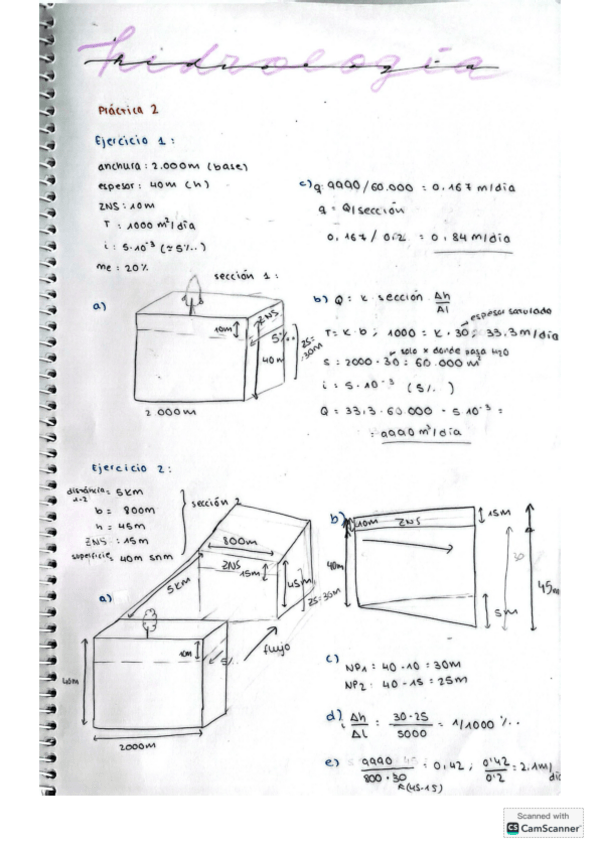 hidrología
Práctica 2
Ejercicio 1:
anchura: 2.000m (base)
espesor: 40m (h)
ZNS: 10m
T: 1000 m²/día
i: 5·10⁻³ (≈5‰)
me: 20%
c) q: 9990/60.000 = 0,167 m/día
q = Q/sección
0,167/0,2 = 0,84 m/día
sección 1:
a)
10m
ZNS
5‰
40m
ZS=30m
2.000m
b) Q: K · sección Δh/Δl
espesor saturado
T=K·b; 1000 = K·30; 33.3m/día
solo x donde pasa H2O
S: 2000·30: 60.000 m²
i: 5·10⁻³ (5‰)
Q = 33,3·60.000·5·10⁻³ =
: 9990 m³/día
Ejercicio 2:
distáncia 1-2 = 5Km
b = 800m
h = 45m
ZNS: 15m
superficie: 40m snm
sección 2
a)
800m
ZNS
15m
45m
ZS=30m
5Km
10m
5‰
flujo
40m
2000m
b)
10m
ZNS
15m
40m
30
45m
5m
c) NP1 = 40-10 = 30m
NP2: 40-15 = 25m
d) i Δh/Δl = 30-25/5000 = 1/1000 ‰
e) 9990/800·30 = 0,42; 0'42/0'2 = 2.1m/día
(45-15)
Scanned with
CS CamScanner